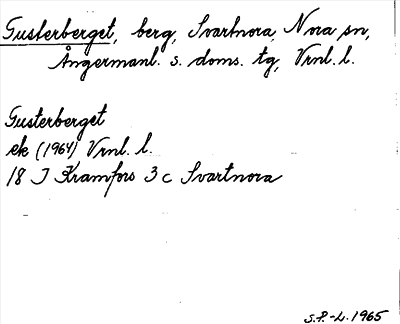 Gusterberget, berg, Svartnora, Nora sn,
Ångermanl. s. doms. tg, Vrnl. l.
Gusterberget
ek (1964) Vrnl. l.
18 J Kramfors 3 c Svartnora
S.P.-L. 1965